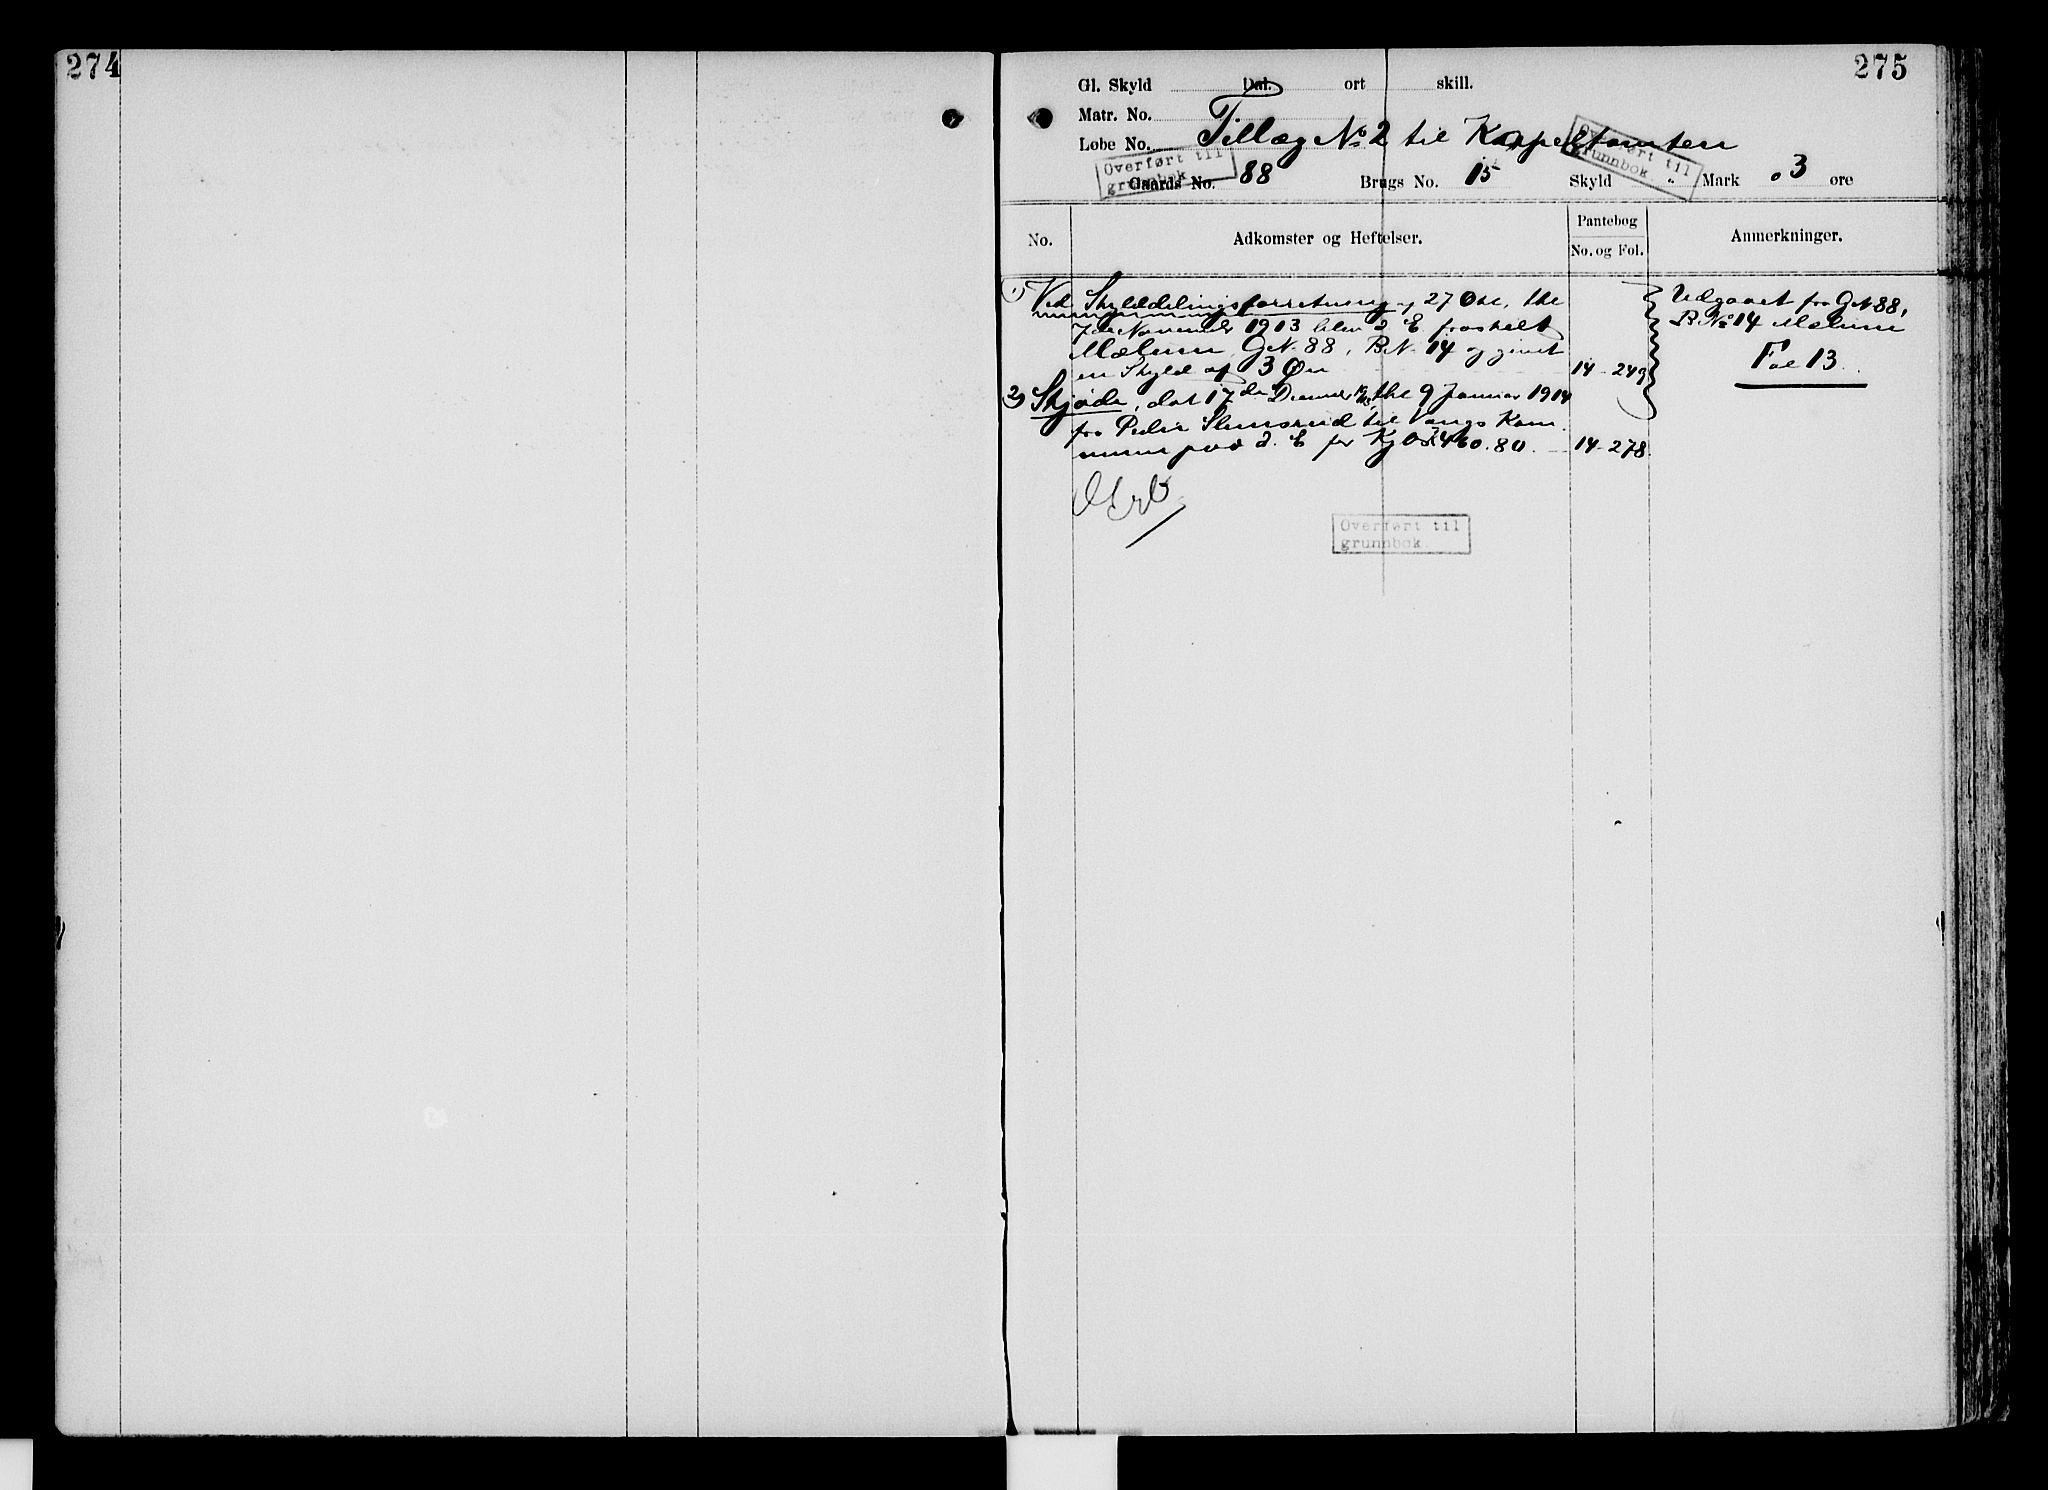 274
275
Gl. Skyld Dal. ort skill.
Matr. No.
Løbe No. Tillæg No 2 til Kappeltomten
Overført til
grunnbok
Overført til
grunnbok
Gaards No. 88 Brugs No. 15 Skyld " Mark 03 øre
No. Adkomster og Heftelser. Pantebog No. og Fol. Anmerkninger.
1) Ved Skylddelingsforretning af 27 Okt, thl
7de November 1913 blev d. E fraskilt
Mælum, GN. 88, BN. 14 og givet
en Skyld af 3 Øre 14-249
Udgaaet fra GN 88,
B No 14 Mælum
Fol 13
2) Skjøde, dat 17de December, thl 9 Januar 1914
fra Peder Slemsrud til Vangs Kom
mune paa d. E for Kr 460.80. 14-278.
Overført til
grunnbok